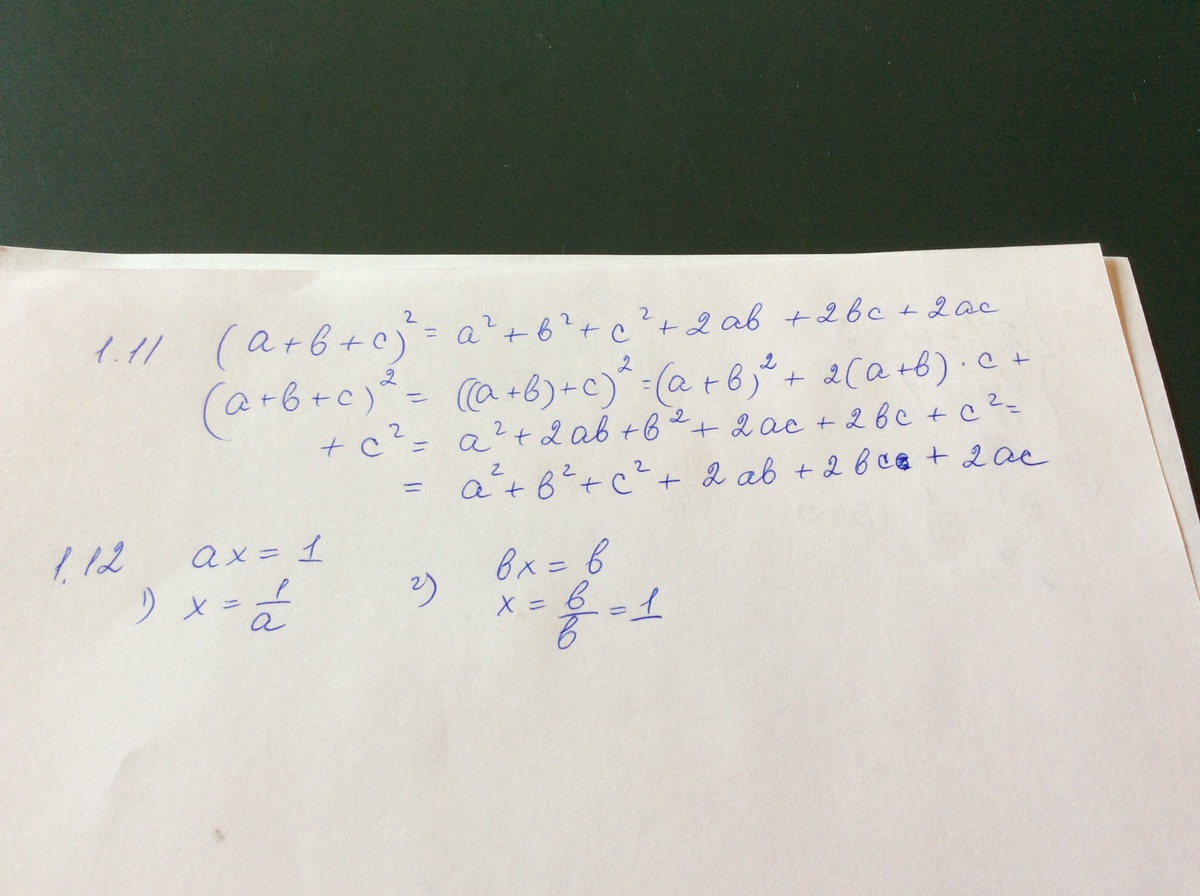 1.11 (a+b+c)² = a² + b² + c² + 2ab + 2bc + 2ac
(a+b+c)² = ((a+b)+c)² = (a+b)² + 2(a+b)·c +
+ c² = a² + 2ab + b² + 2ac + 2bc + c² =
= a² + b² + c² + 2ab + 2bc + 2ac
1.12 ax = 1 bx = b
1) x = 1/a 2) x = b/b = 1